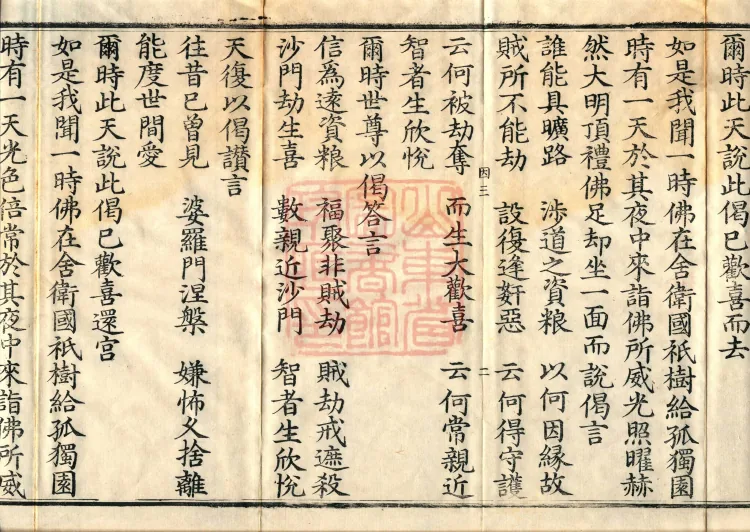 爾時此天說此偈已歡喜而去
如是我聞一時佛在舍衛國祇樹給孤獨園
時有一天於其夜中來詣佛所威光照曜赫
然大明頂禮佛足却坐一面而說偈言
誰能具曠路 涉道之資粮 以何因緣故
賊所不能劫 設復逢姧惡 云何得守護
因三 二
云何被劫奪 而生大歡喜 云何常親近
智者生欣悅
爾時世尊以偈答言
信爲遠資粮 福聚非賊劫 賊劫戒遮殺
沙門劫生喜 數親近沙門 智者生欣悅
天復以偈讚言
往昔已曾見 婆羅門涅槃 嫌怖久捨離
能度世間愛
爾時此天說此偈已歡喜還宮
如是我聞一時佛在舍衛國祇樹給孤獨園
時有一天光色倍常於其夜中來詣佛所威